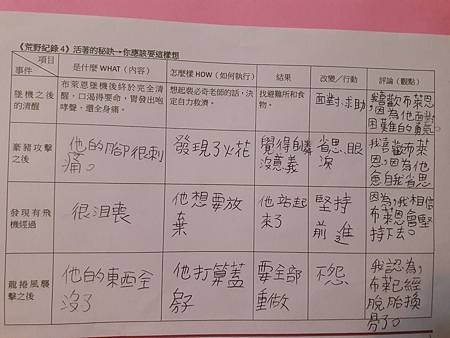 《荒野紀錄 4》活著的秘訣→你應該要這樣想
項目
事件
是什麼 WHAT(內容)
怎麼樣 HOW(如何執行)
結果
改變/行動
評論(觀點)
墜機之後
的清醒
布萊恩墜機後終於完全清
醒,口渴得要命,胃發出咆
哮聲,還全身痛。
想起裴必奇老師的話,決
定自力救濟。
找避難所和食
物。
面對,求助
我喜歡布萊恩,
因為他面對
困難的勇氣。
豪豬攻擊
之後
他的腳很刺
痛。
發現了火花
覺得自憐
沒意義
省思、眼
淚
我喜歡布萊
恩,因為他
會自我省思
發現有飛
機經過
很沮喪
他想要放
棄
他站起
來了
堅持
前進
因為,我相信
布萊恩會堅
持下去。
龍捲風襲
擊之後
他的東西全
沒了
他打算蓋
房子
要全部
重做
不怨
我認為,
布萊已經
脫胎換
骨了。